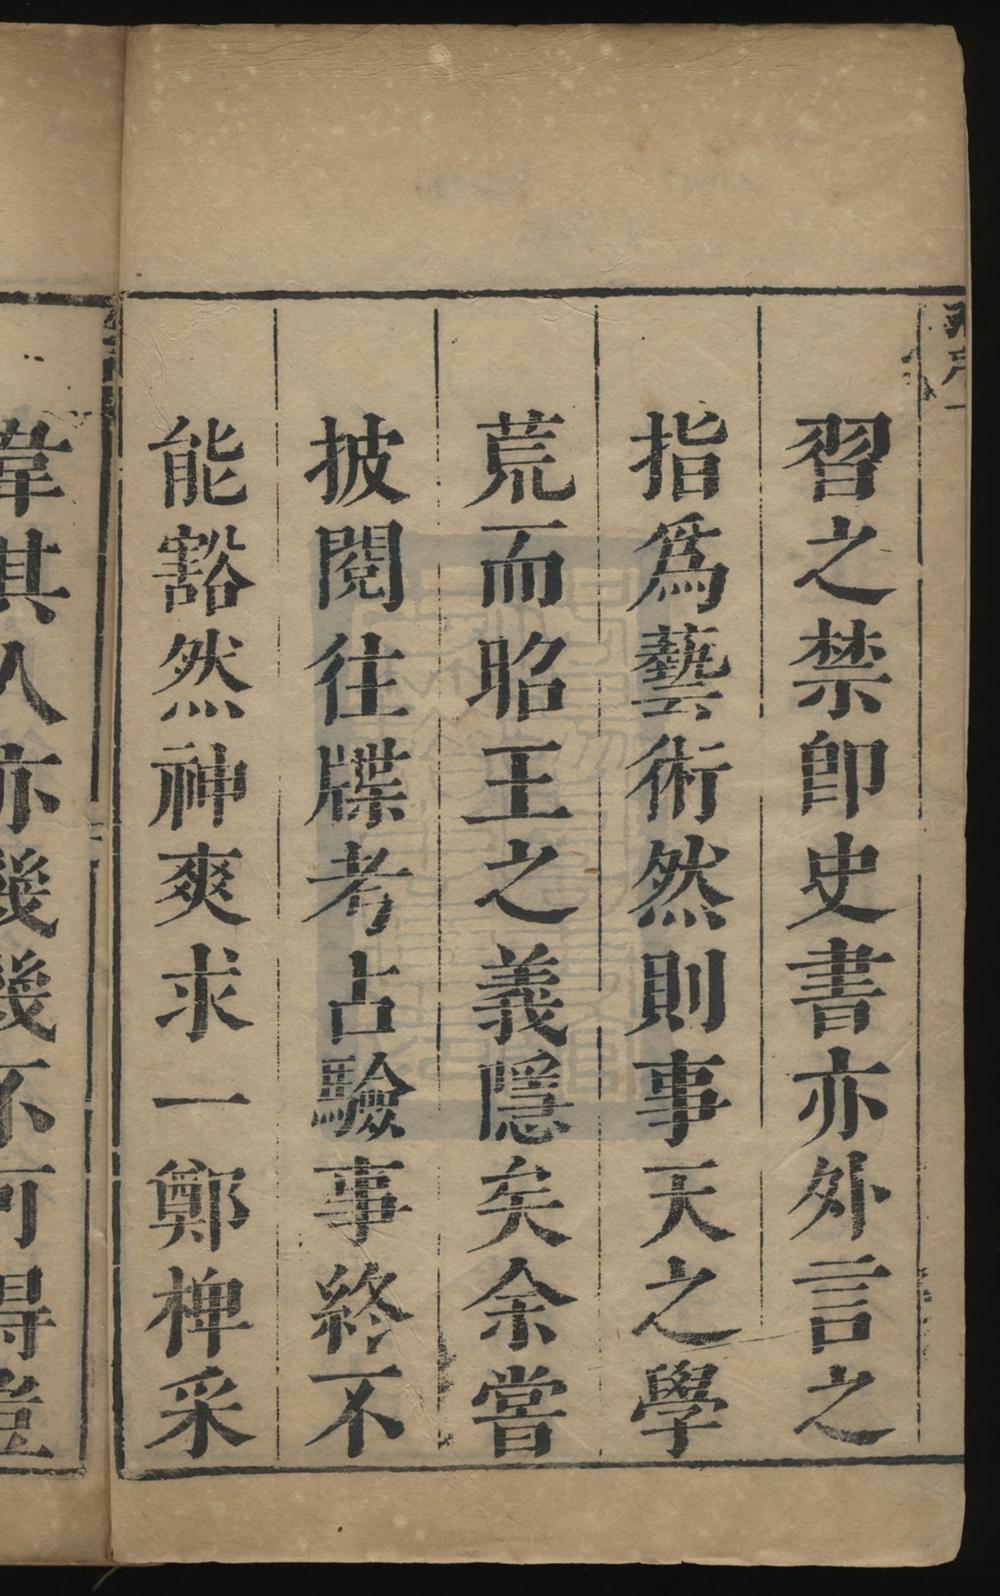 習之禁卽史書亦外言之
指爲藝術然則事天之學
荒而昭王之義隱矣余嘗
披閱往牒考占驗事終不
能豁然神爽求一鄭椑采
韋其人亦幾幾不可得豈